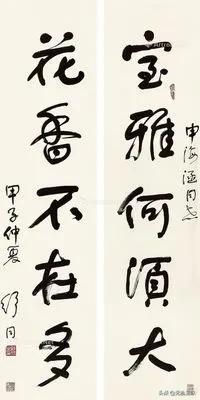 申海涵同志
室雅何須大
花香不在多
甲子仲夏 舒同